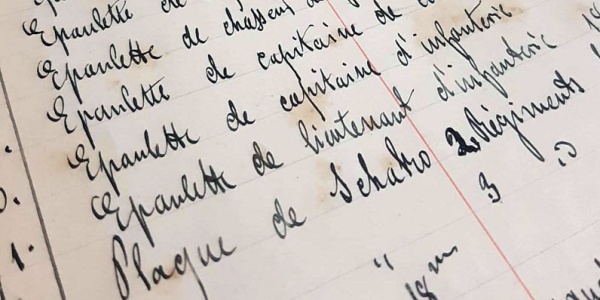 Epaulette de
Epaulette de chasseur
Epaulette de capitaine de
Epaulette de capitaine d'infanterie
Epaulette de lieutenant d'infanterie
Plaque de Schako 2 Régiments
1. " 3
18ᵐᵉ